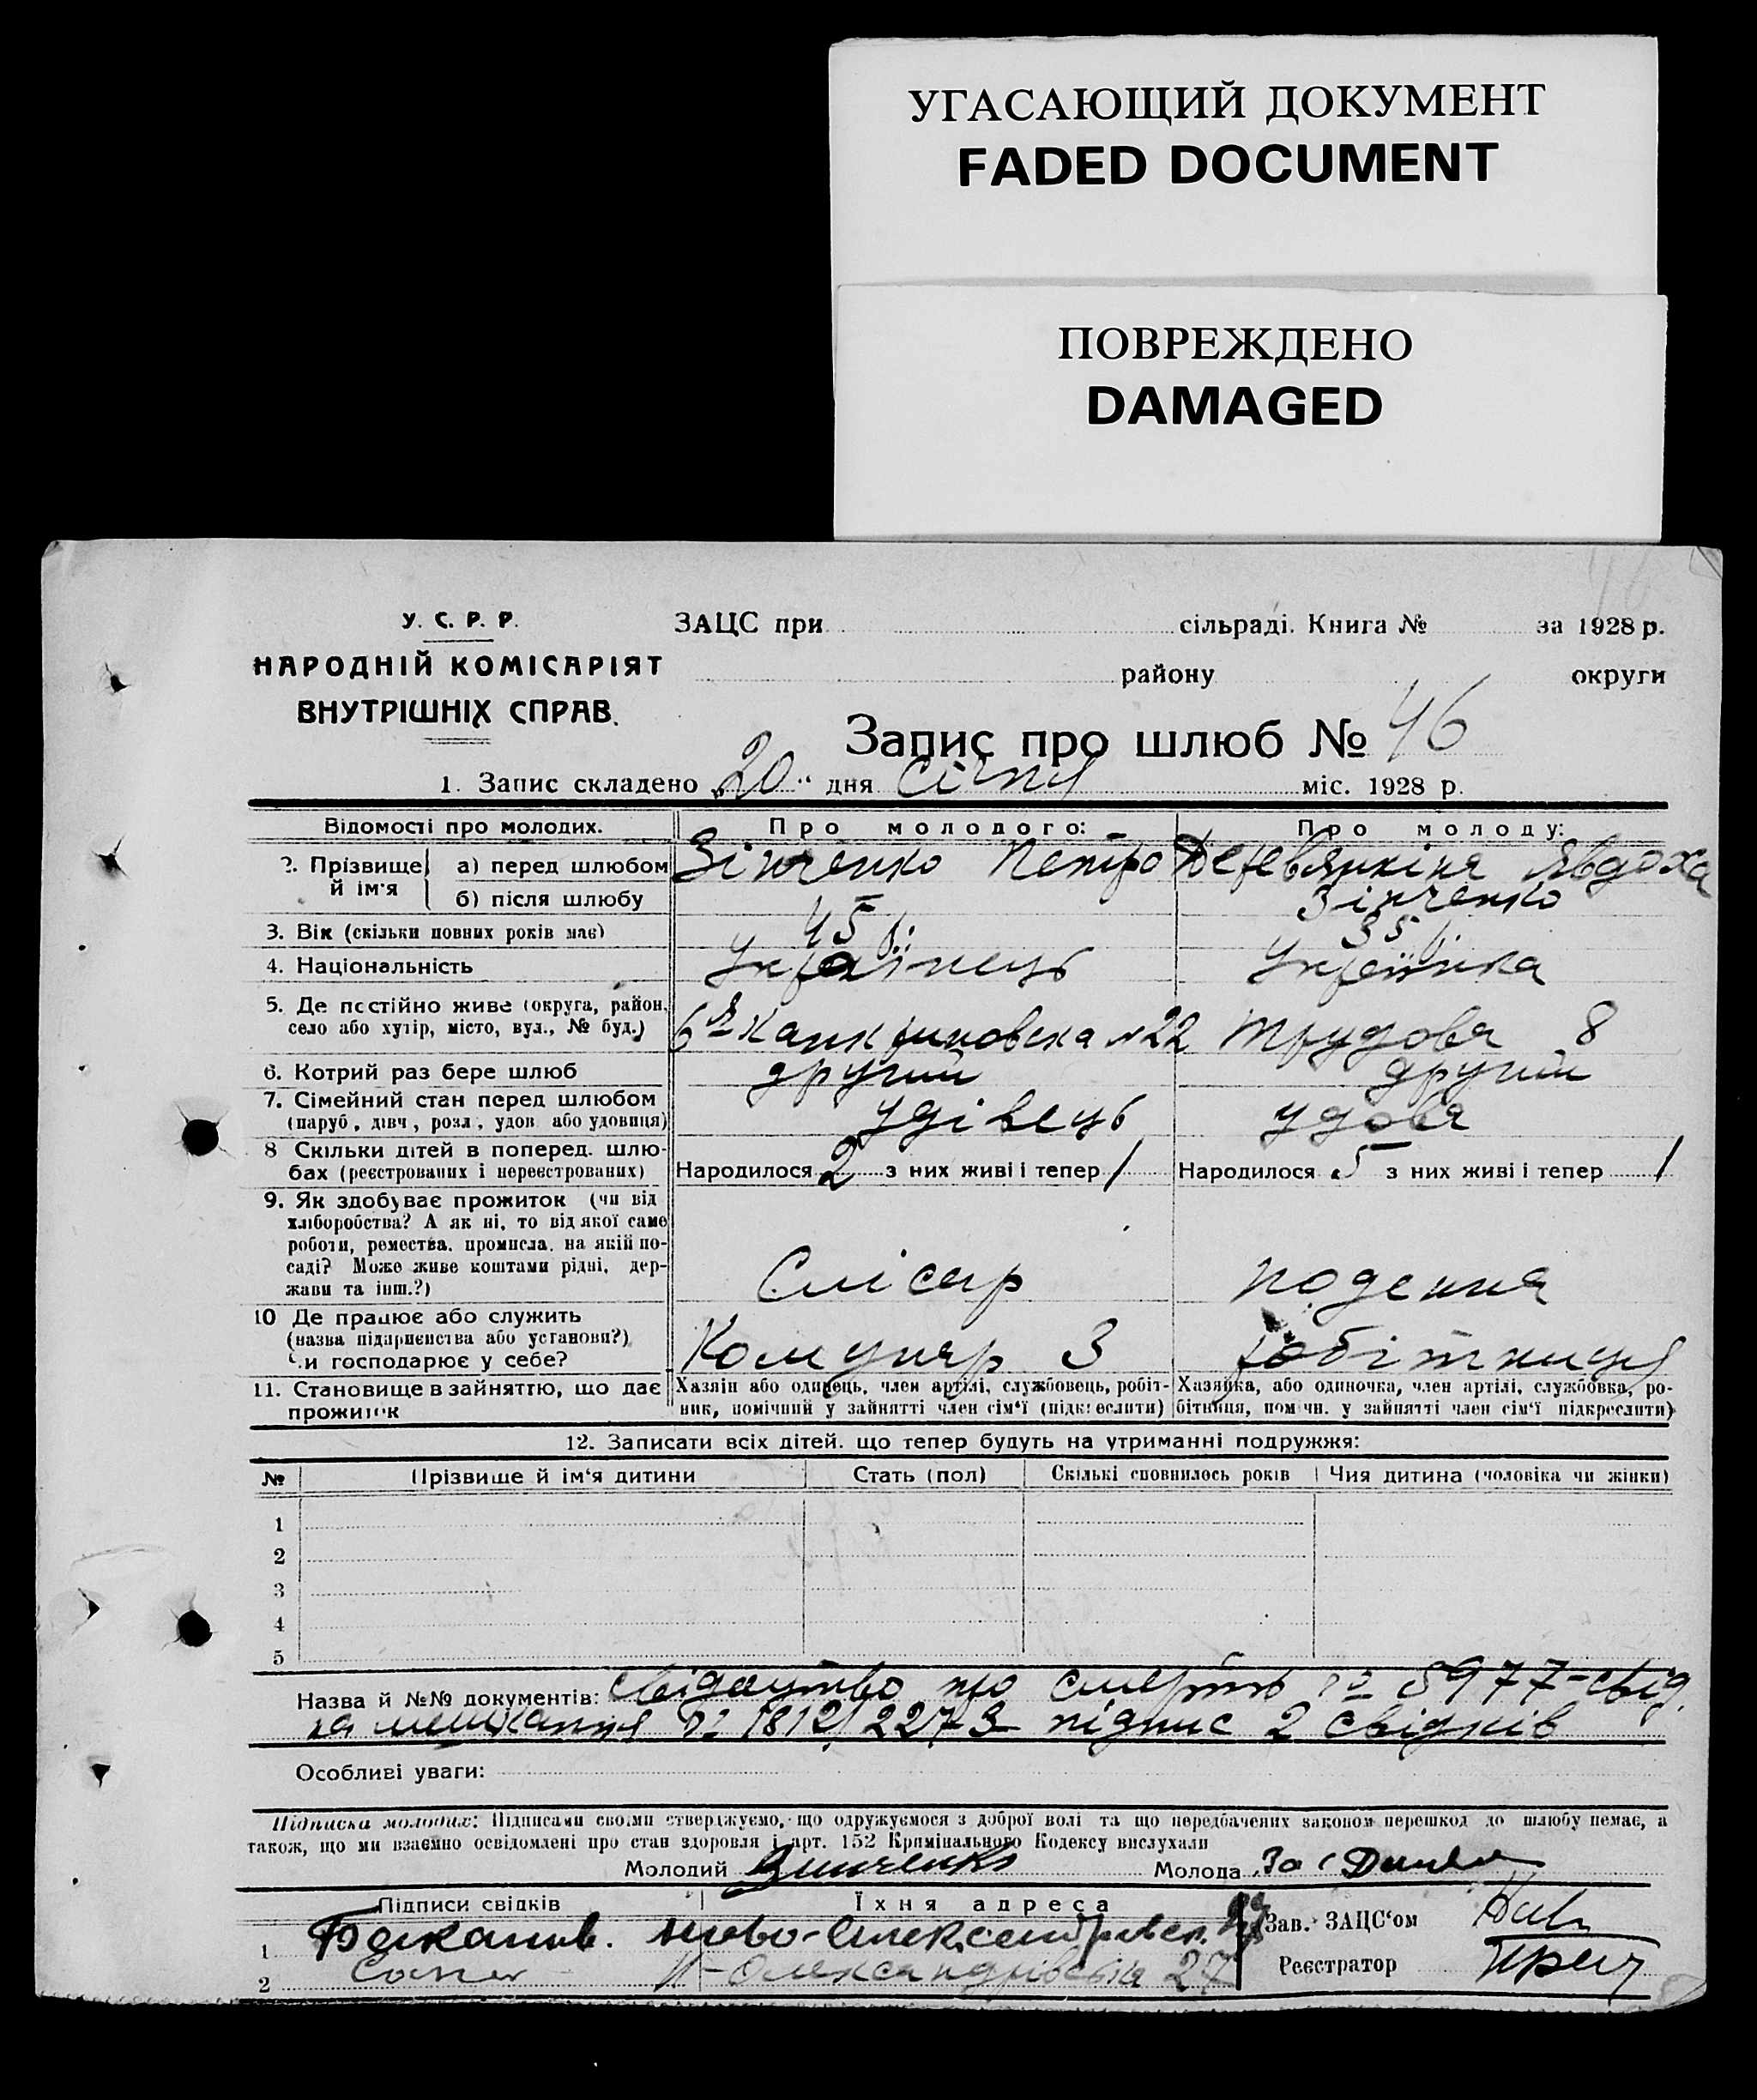 УГАСАЮЩИЙ ДОКУМЕНТ
FADED DOCUMENT
ПОВРЕЖДЕНО
DAMAGED
У. С. Р. Р.
НАРОДНІЙ КОМІСАРІЯТ
ВНУТРІШНІХ СПРАВ.
ЗАЦС при сільраді. Книга № за 1928 р.
району округи
Запис про шлюб № 46
1. Запис складено „20“ дня січня міс. 1928 р.
Відомості про молодих. Про молодого: Про молоду:
2. Прізвище й ім'я а) перед шлюбом Зінченко Петро Явдоха
б) після шлюбу Зінченко
3. Вік (скільки повних років має) 45 р. 35 р.
4. Національність Українець Українка
5. Де постійно живе (округа, район, село або хутір, місто, вул., № буд.) №22 Трудова 8
6. Котрий раз бере шлюб другий другий
7. Сімейний стан перед шлюбом (паруб., дівч., розл., удов. або удовиця) удівець удова
8 Скільки дітей в поперед. шлюбах (реєстрованих і нереєстрованих) Народилося 2 з них живі і тепер 1 Народилося 5 з них живі і тепер 1
9. Як здобуває прожиток (чи від
хліборобства? А як ні, то від якої саме
роботи, ремества, промисла, на якій по-
саді? Може живе коштами рідні, дер- Слісар поденна
жави та інш.?)
10 Де працює або служить
(назва підприємства або установи?) Комунар 3 робітниця
Чи господарює у себе?
11. Становище в зайняттю, що дає прожиток Хазяїн або одинець, член артілі, службовець, робіт-
ник, помічний у зайнятті член сім'ї (підкреслити) Хазяйка, або одиночка, член артілі, службовка, ро-
бітниця, помічн. у зайнятті член сім'ї підкреслити)
12. Записати всіх дітей, що тепер будуть на утриманні подружжя:
№ Прізвище й ім'я дитини Стать (пол) Скількі сповнилось років Чия дитина (чоловіка чи жінки)
1
2
3
4
5
Назва й №№ документів: свідоцтво про смерть № 5977 - свід.
на мешкання № 1812/2273 підпис 2 свідків
Особливі уваги:
Підписка молодих: Підписами своїми стверджуємо, що одружуємося з доброї волі та що передбачених законом перешкод до шлюбу немає, а
також, що ми взаємно освідомлені про стан здоровля і арт. 152 Кримінального Кодексу вислухали
Молодий Зинченко Молода За
Підписи свідків Їхня адреса
1 Ново-Александровск. Зав. ЗАЦС'ом
2 Н-Олександрівська 27 Реєстратор